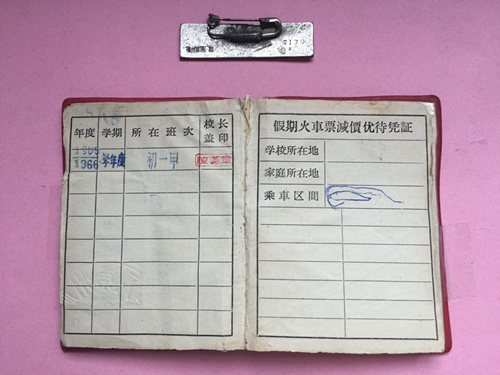 2170
年度 学期 所在班次 校长盖印
1965
1966 学年度 初一甲
假期火車票減價优待凭証
学校所在地
家庭所在地
乘車区間